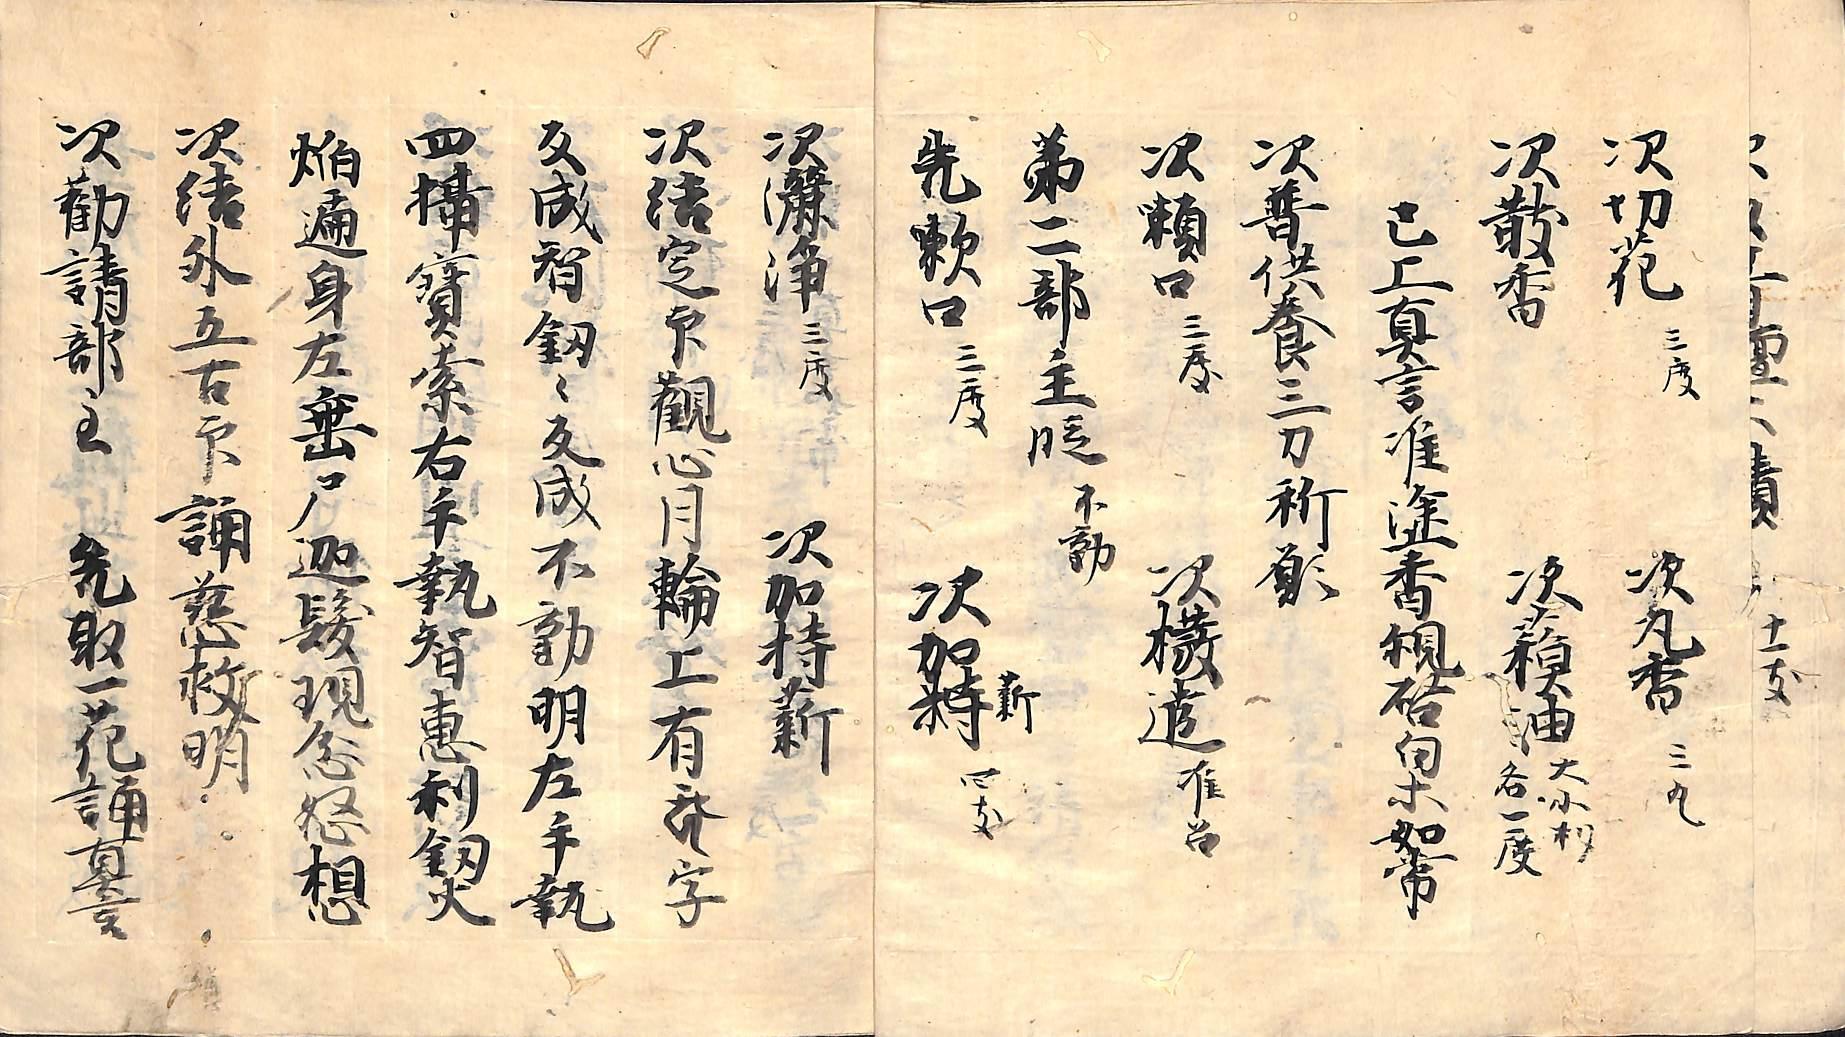 十一支
次切花 三度 次丸香 三丸
次散香 次蘓油 大小杓 各一度
已上真言准塗香観啓白木如常
次普供養三力祈願
次嗽口 三度 次撥遣 准
第二部主段 不動
先嗽口 三度 次加持薪 四支
次灑浄 三度 次加持薪
次結定印観心月輪上有 字
反成智釼々反成不動明左手執
四攝寳索右手執智恵利釼火
焔遍身左垂 迦髪現忿怒想
次結外五古印誦慈救明
次勧請部主 先取一花誦真言